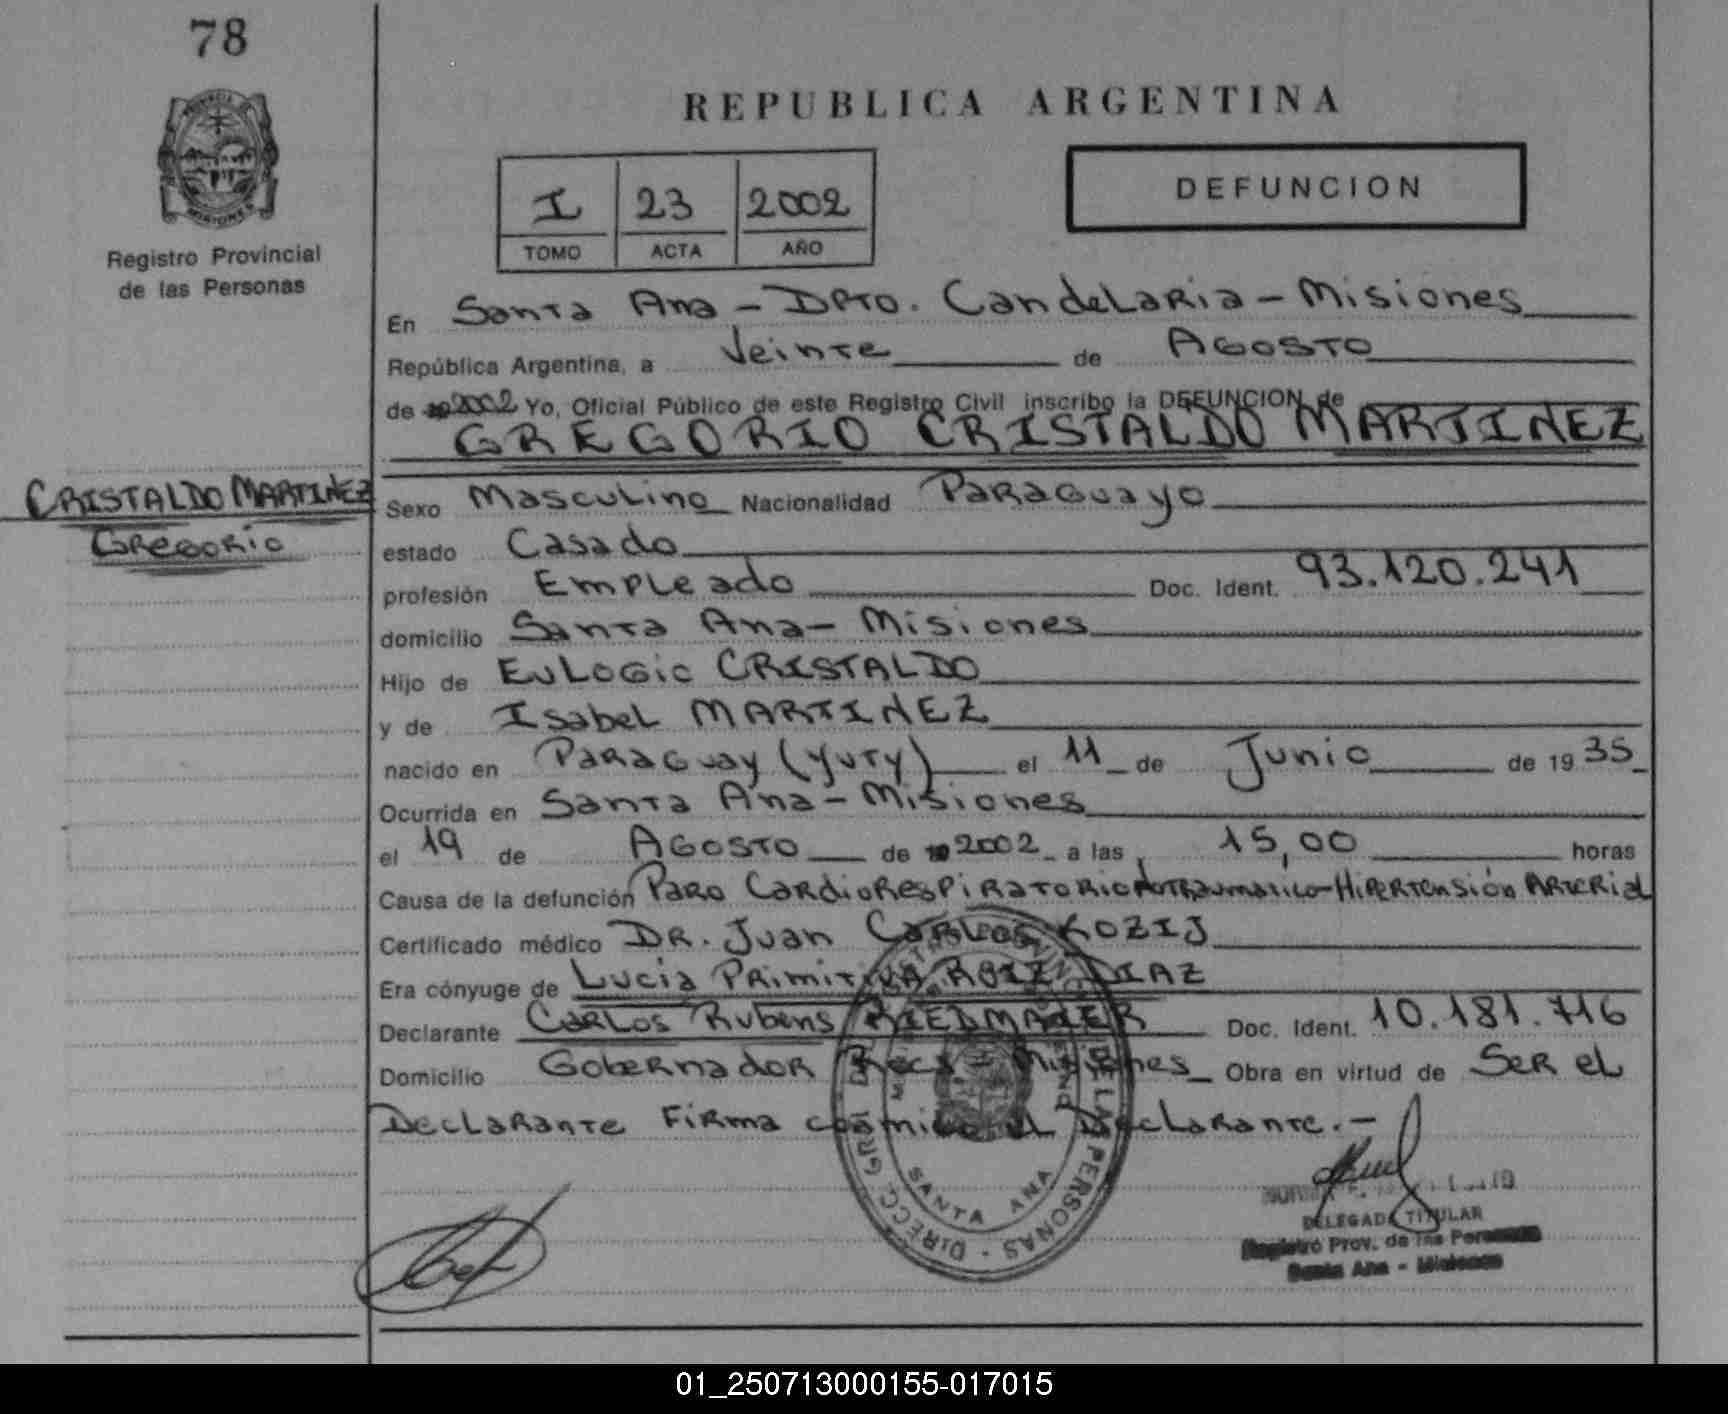 78
PROVINCIA DE
MISIONES
Registro Provincial
de las Personas
REPUBLICA ARGENTINA
I 23 2002
TOMO ACTA AÑO
DEFUNCION
En Santa Ana - DPTO. Candelaria - Misiones
República Argentina, a Veinte de Agosto
de 2002 Yo, Oficial Público de este Registro Civil inscribo la DEFUNCION de
GREGORIO CRISTALDO MARTINEZ
CRISTALDO MARTINEZ
Gregorio
Sexo Masculino Nacionalidad Paraguayo
estado Casado
profesión Empleado Doc. Ident. 93.120.241
domicilio Santa Ana - Misiones
Hijo de Eulogio CRISTALDO
y de Isabel MARTINEZ
nacido en Paraguay (yuty) el 11 de Junio de 1935
Ocurrida en Santa Ana - Misiones
el 19 de Agosto de 2002 a las 15,00 horas
Causa de la defunción Paro Cardiorespiratorio no traumatico - Hipertensión Arterial
Certificado médico DR. Juan Carlos KOZIJ
Era cónyuge de Lucia Primitiva RUIZ DIAZ
Declarante Carlos Rubens RIEDMAIER Doc. Ident. 10.181.716
Domicilio Gobernador Roca - Misiones Obra en virtud de Ser el
Declarante Firma conmigo el Declarante. -
SANTA ANA
DE LAS PERSONAS - DIRECC. GRAL.
DELEGADA TITULAR
Registro Prov. de las Personas
Santa Ana - Misiones
01_250713000155-017015